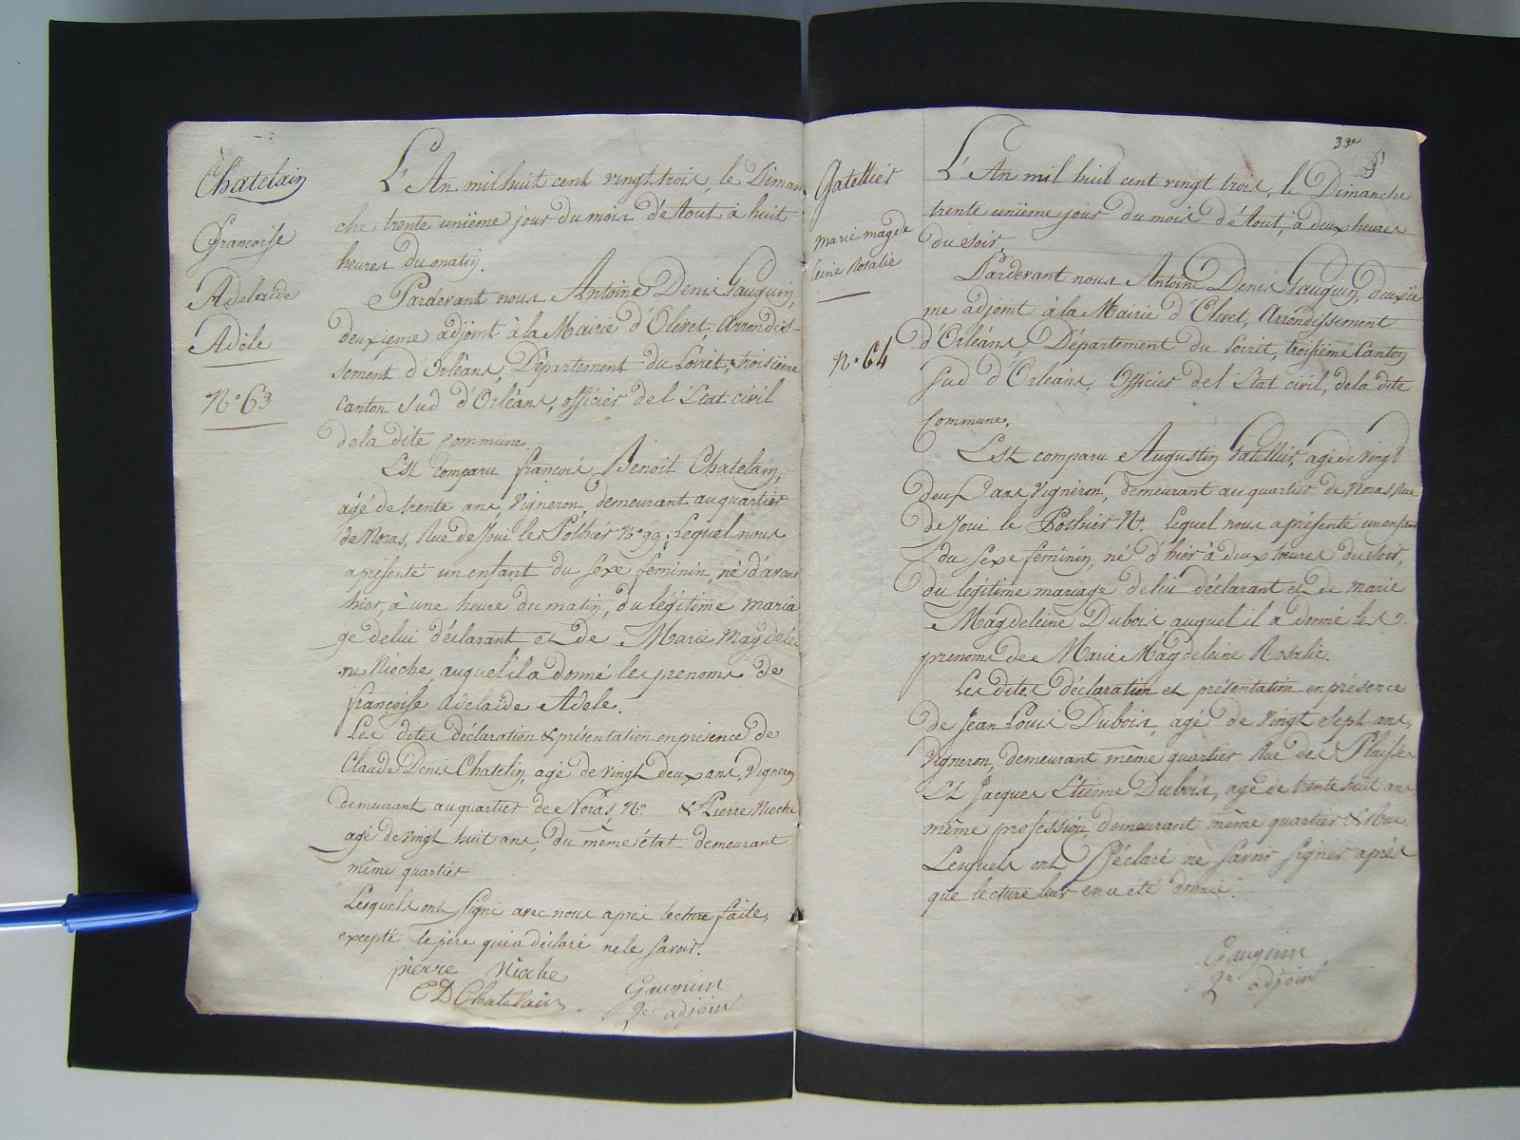 Chatelain
Françoise
Adelaïde
Adèle
N° 63
L'An mil huit cent vingt trois, le Diman
che trente unième jour du mois d'Aout à huit
heures du matin.
Pardevant nous Antoine Denis Gauguin,
deuxieme adjoint à la Mairie d'Olivet, Arrondis-
sement d'Orléans, Département du Loiret, troisième
Canton Sud d'Orléans, officier de l'Etat civil
de la dite commune
Est comparu françois Benoit Chatelain,
âgé de trente ans, Vigneron, demeurant au quartier
de Noras, Rue de Joui le Pothier N° 99, Lequel nous
a présenté un enfant du sexe féminin, né d'avant
hier, à une heure du matin, du légitime maria
ge de lui déclarant et de Marie Magdelei
ne Rioche, auquel il a donné les prenoms de
françoise Adelaïde Adele.
Les dites déclaration & présentation en présence de
Claude Denis Chatelin, agé de vingt deux ans, Vigneron
demeurant au quartier de Noras N° & Pierre Rioche
agé de vingt huit ans, du même état demeurant
même quartier
Lesquels ont signé avec nous après lecture faite,
excepté le père qui a déclaré ne le savoir.
pierre Rioche
C D Chatelain
Gauguin
2e adjoint
33e
Gatellier
marie magde
leine Rosalie
N° 64
L'An mil huit cent vingt trois, le Dimanche
trente unième jour du mois d'Aout, à deux heures
du soir.
Pardevant nous Antoine Denis Gauguin, deuxiè
me adjoint à la Mairie d'Olivet, Arrondissement
d'Orléans Département du Loiret, troisième Canton
Sud d'Orléans, Officier de l'Etat civil, de la dite
Commune.
Est comparu Augustin Gatellier, agé de vingt
deux ans Vigneron, demeurant au quartier de Noras Rue
de Joui le Pothier N°. Lequel nous a présenté un enfant
du sexe féminin, né d'hier à deux heures du soir,
du légitime mariage de lui déclarant et de marie
Magdeleine Dubois auquel il a donné les
prenoms de Marie Magdeleine Rosalie.
Les dites déclaration et présentation en présence
de Jean Louis Dubois, agé de vingt sept ans,
Vigneron, demeurant même quartier Rue des
Et Jacques Etienne Dubois, agé de trente huit ans
même profession demeurant même quartier & Rue
Lesquels ont Déclaré ne savoir signer après
que lecture leur en a été donné.
Gauguin
2e adjoint